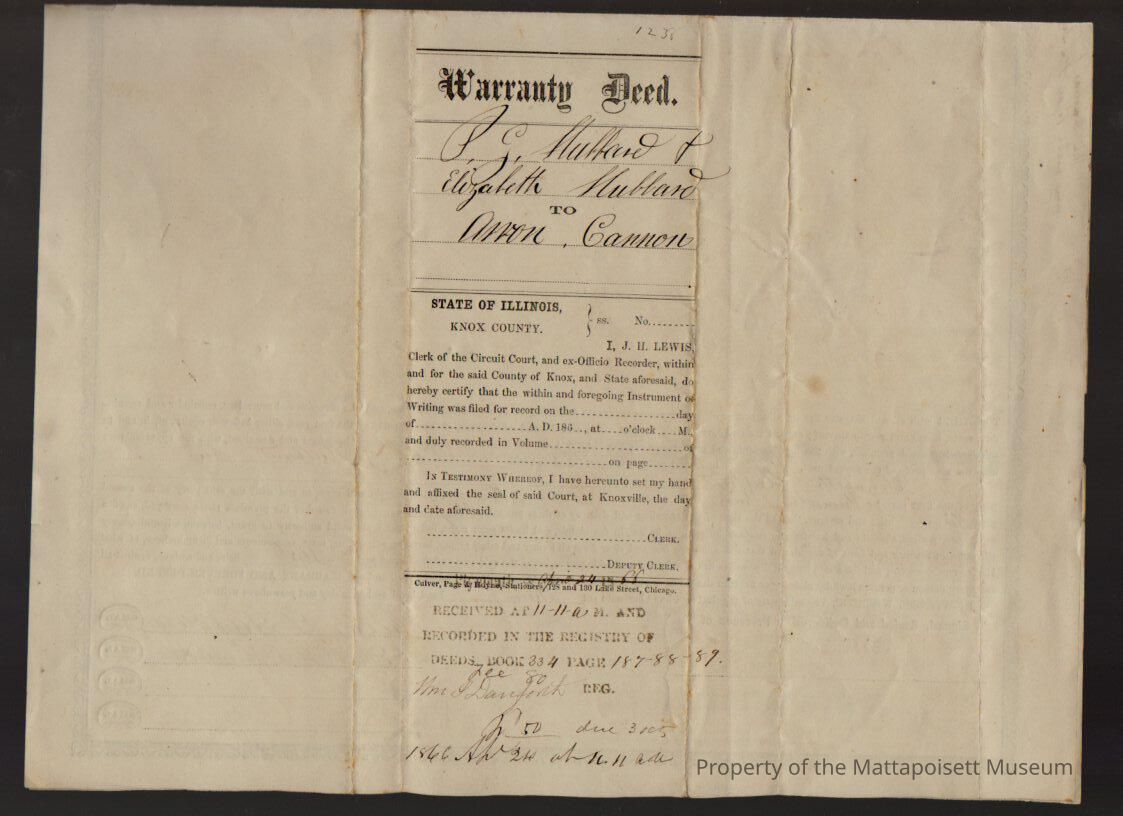 1238
Warranty Deed.
P. G. Hubbard &
Elizabeth Hubbard
TO
Arron Cannon
STATE OF ILLINOIS,
KNOX COUNTY.
ss. No.
I, J. H. LEWIS,
Clerk of the Circuit Court, and ex-Officio Recorder, within
and for the said County of Knox, and State aforesaid, do
hereby certify that the within and foregoing Instrument of
Writing was filed for record on the day
of A. D. 186 , at o'clock M.,
and duly recorded in Volume of
on page
IN TESTIMONY WHEREOF, I have hereunto set my hand
and affixed the seal of said Court, at Knoxville, the day
and date aforesaid.
CLERK.
DEPUTY CLERK.
24
Culver, Page & Hoyne, Stationers, 128 and 130 Lake Street, Chicago.
RECEIVED AT 11-11 a M. AND
RECORDED IN THE REGISTRY OF
DEEDS, BOOK 334 PAGE 187-88-89.
fee 80
Danforth REG.
50 due
1866 Ap 24 at 11.11
Property of the Mattapoisett Museum